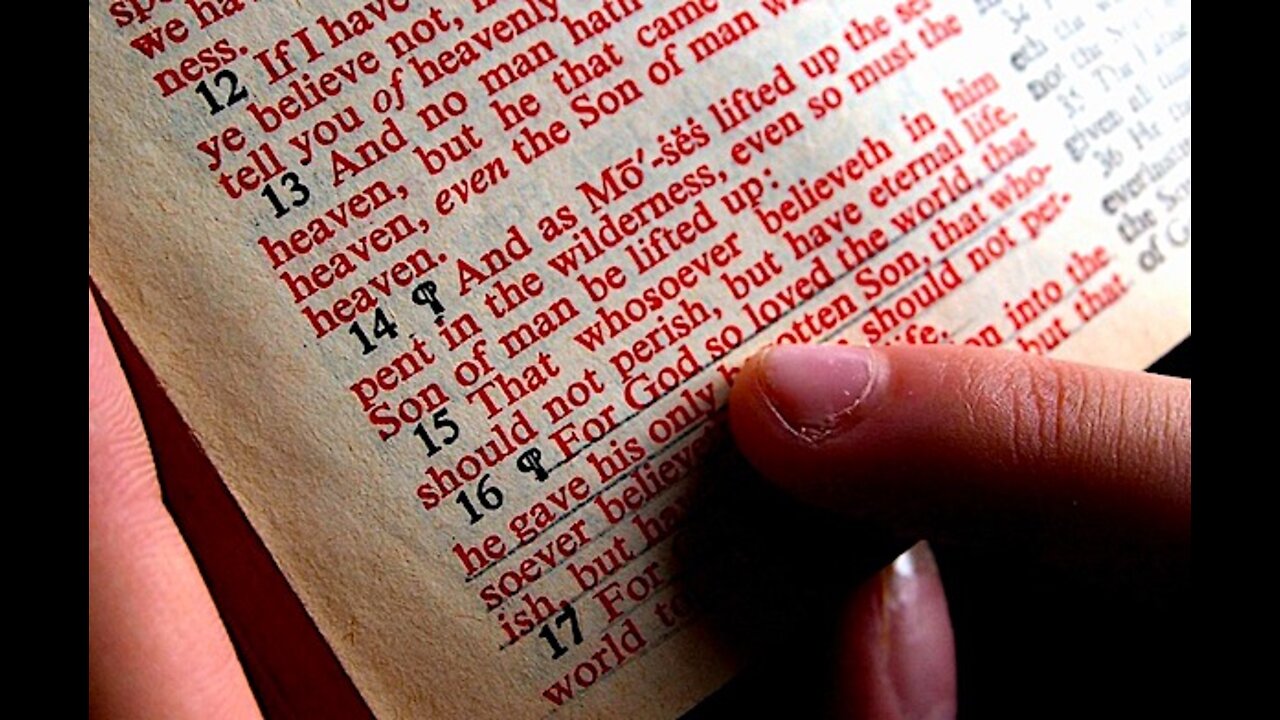 we ha
ness.
12 If I have
ye believe not,
tell you of heavenly
13 And no man hath
heaven, but he that came
heaven, even the Son of man
heaven.
14 ¶ And as Mō′-ṡĕṡ lifted up the ser
pent in the wilderness, even so must the
Son of man be lifted up:
15 That whosoever believeth in him
should not perish, but have eternal life.
16 ¶ For God so loved the world, that
he gave his only b otten Son, that who-
soever believe should not per-
ish, but ha life.
17 For on into the
world to but that
34
eth the
not the
35 The
given all
36 He
everlasti
the So
of G